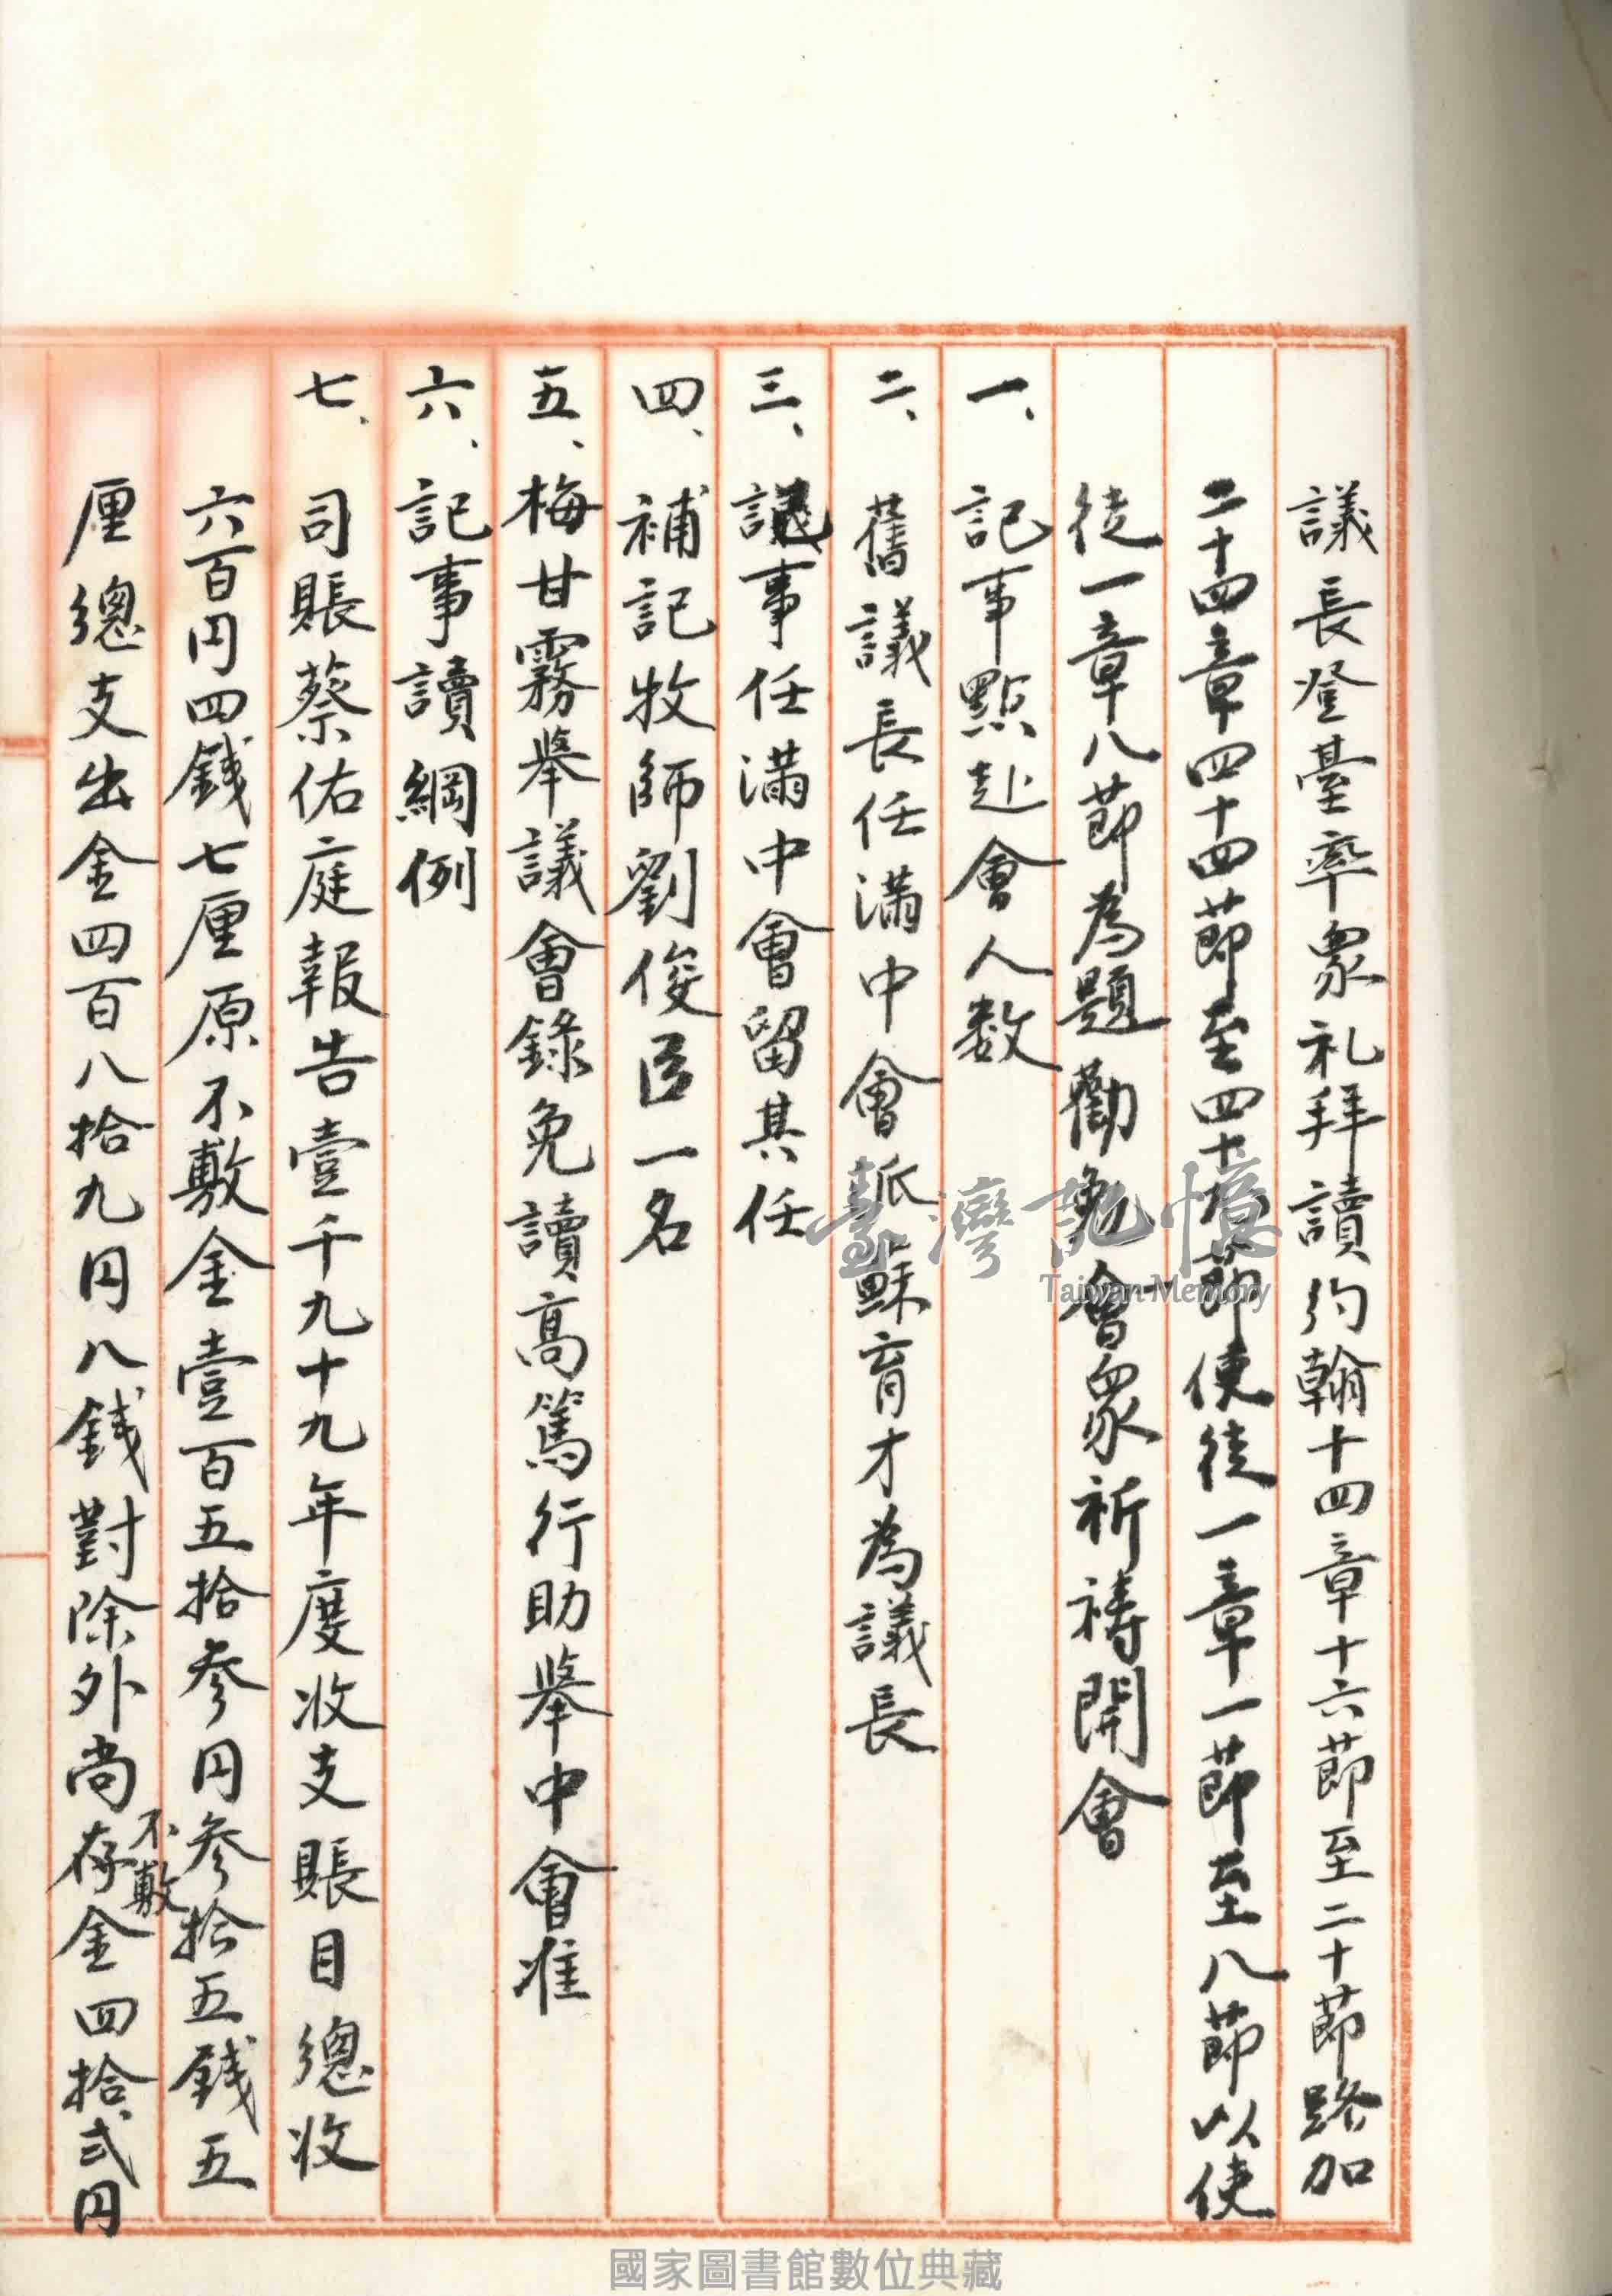 議長登臺率眾礼拜讀約翰十四章十六節至二十節路加
二十四章四十四節至四十九節使徒一章一節至八節以使
徒一章八節為題勸勉會眾祈禱開會
一、記事點赴會人数
二、舊議長任滿中會派蘇育才為議長
三、記事任滿中會留其任
四、補記牧師劉俊臣一名
五、梅甘霧舉議會錄免讀高篤行助舉中會准
六、記事讀綱例
七、司賬蔡佑庭報告壹千九十九年度收支賬目總收
六百円四錢七厘原不敷金壹百五拾参円参拾五錢五
厘總支出金四百八拾九円八錢對除外尚存金四拾弍円
不敷
臺灣記憶
Taiwan Memory
國家圖書館數位典藏